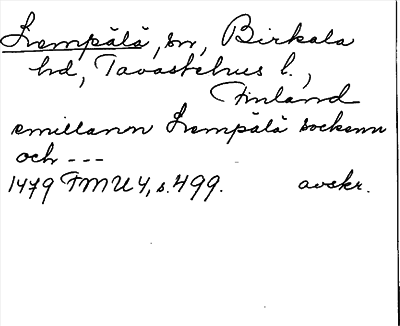 Lempälä, sn, Birkala
hd, Tavastehus l.,
Finland
emillann Lempälä sockenn
och ---
1479 FMU 4, s. 499. avskr.